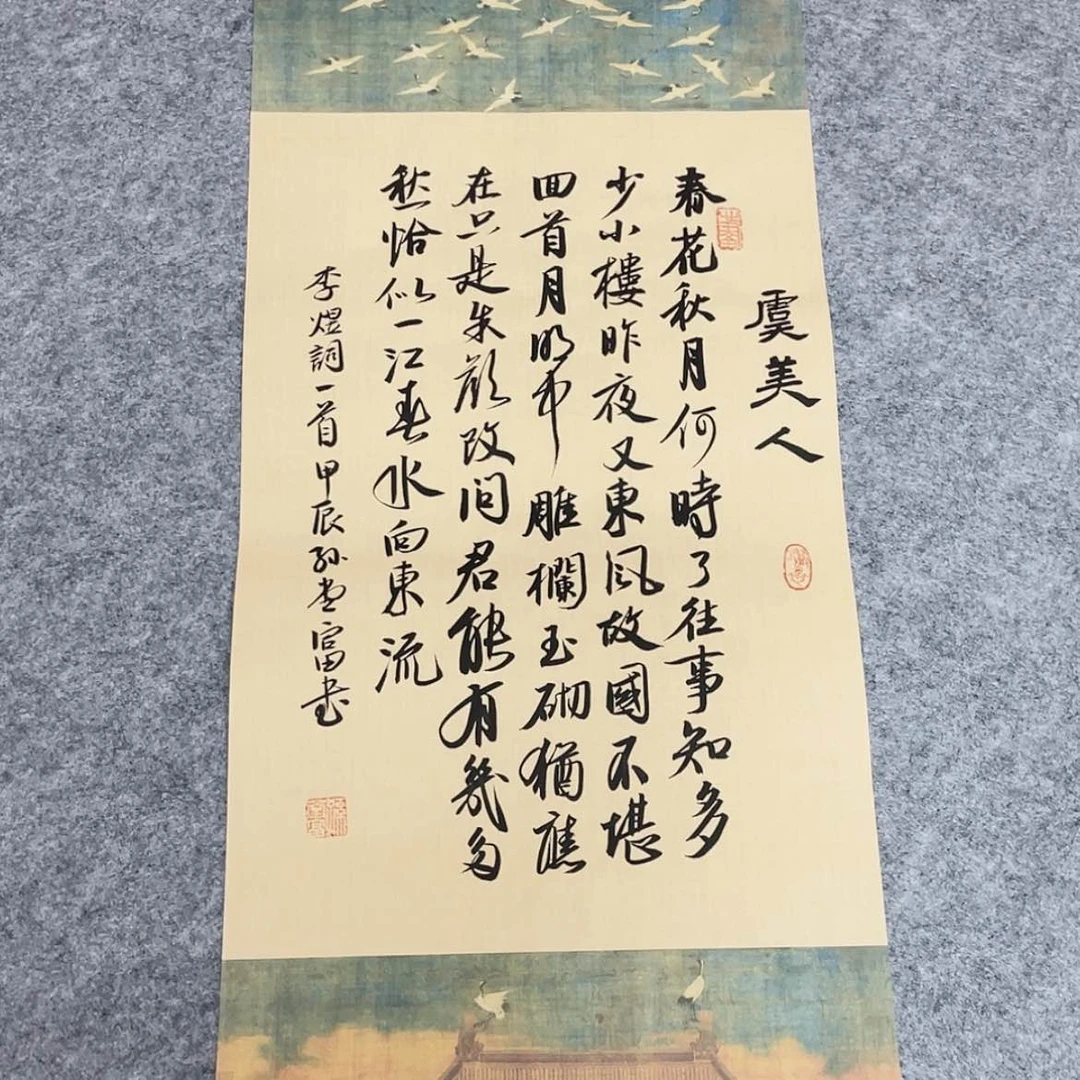 虞美人
春花秋月何時了往事知多
少小樓昨夜又東風故國不堪
回首月明中雕欄玉砌猶應
在只是朱顏改問君能有幾多
愁恰似一江春水向東流
李煜詞一首甲辰孫貴富書